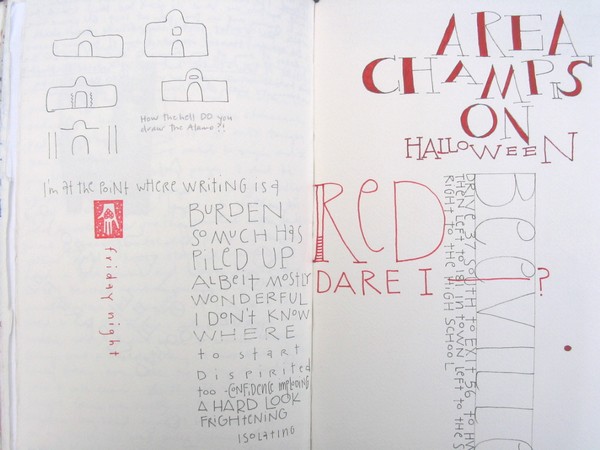 How the hell DO you
draw The Alamo?!
I'm at the POINT WHERE WRITING IS a
BURDEN
So MUCH HAS
PILED UP
ALBEIT MOSTLY
WONDERFUL
I DON'T KNOW
WHERE
to start
Dispirited
too - CONFIDENCE imploding
A HARD LOOK
FRIGHTENING
ISOLATING
friday night
AREA
CHAMPINS
ON
HALLOWEEN
ReD
DARE I ?
BeeVILLe
DRIVE 37 SOUTH TO EXIT 56 TO HW
THEN LEFT TO 181 IN TOWN LEFT TO THE S
RIGHT TO THE HIGH SCHOOL